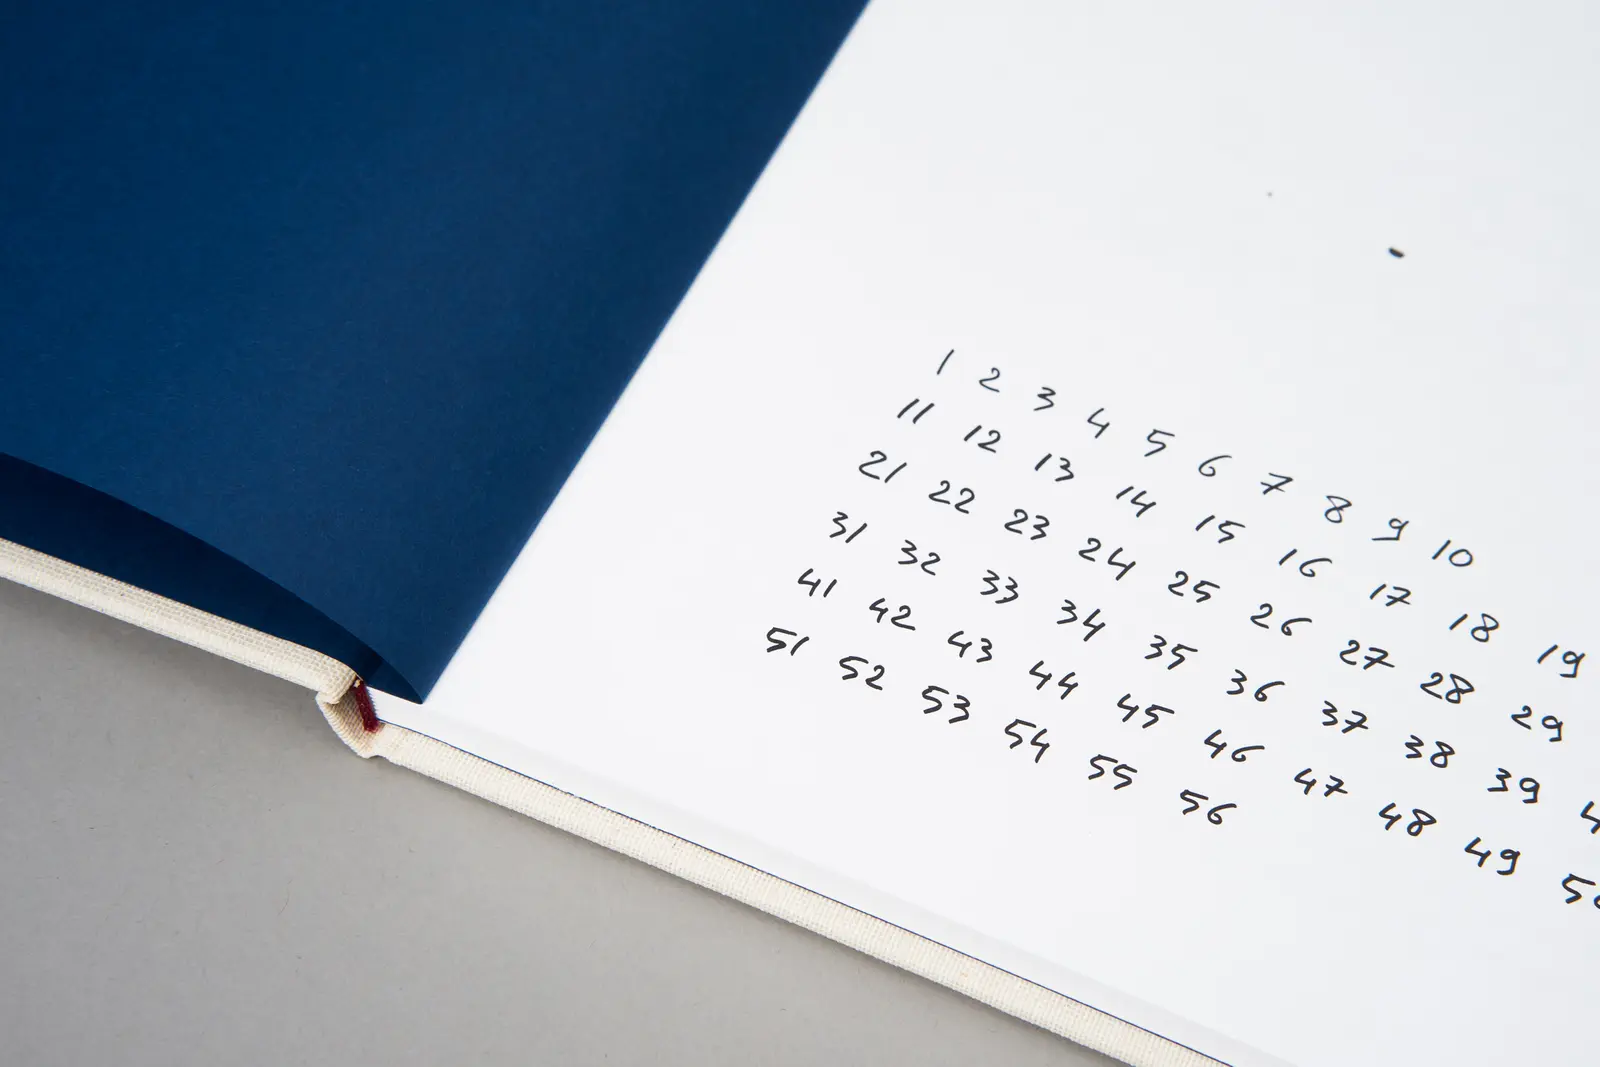 1 2 3 4 5 6 7 8 9 10
11 12 13 14 15 16 17 18 19
21 22 23 24 25 26 27 28 29
31 32 33 34 35 36 37 38 39
41 42 43 44 45 46 47 48 49
51 52 53 54 55 56